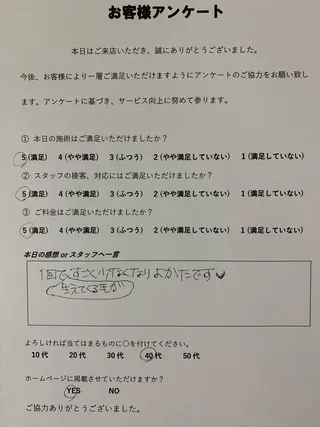 お客様アンケート
本日はご来店いただき、誠にありがとうございました。
今後、お客様により一層ご満足いただけますようにアンケートのご協力をお願い致し
ます。アンケートに基づき、サービス向上に努めて参ります。
① 本日の施術はご満足いただけましたか？
5(満足) 4(やや満足) 3(ふつう) 2(やや満足していない) 1(満足していない)
② スタッフの接客、対応にはご満足いただけましたか？
5(満足) 4(やや満足) 3(ふつう) 2(やや満足していない) 1(満足していない)
③ ご料金はご満足いただけましたか？
5(満足) 4(やや満足) 3(ふつう) 2(やや満足していない) 1(満足していない)
本日の感想 or スタッフへ一言
1回ですごく少なくなりよかったです♥
生えてくる毛が
よろしければ当てはまるものに○を付けてください。
10代 20代 30代 40代 50代
ホームページに掲載させていただけますか？
YES NO
ご協力ありがとうございました。